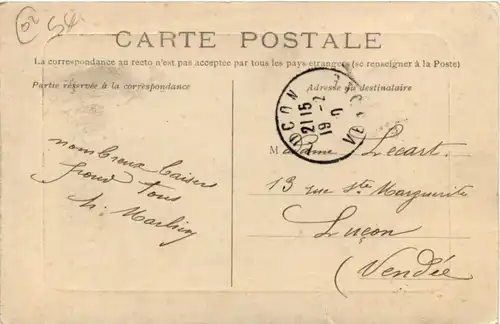 CARTE POSTALE
La correspondance au recto n'est pas acceptée par tous les pays étrangers (se renseigner à la Poste)
Partie réservée à la correspondance
Adresse du destinataire
nombreux baisers
pour tous
Madame Lecart.
13 rue Ste Marguerite
Luçon
(Vendée
21 15
19-2